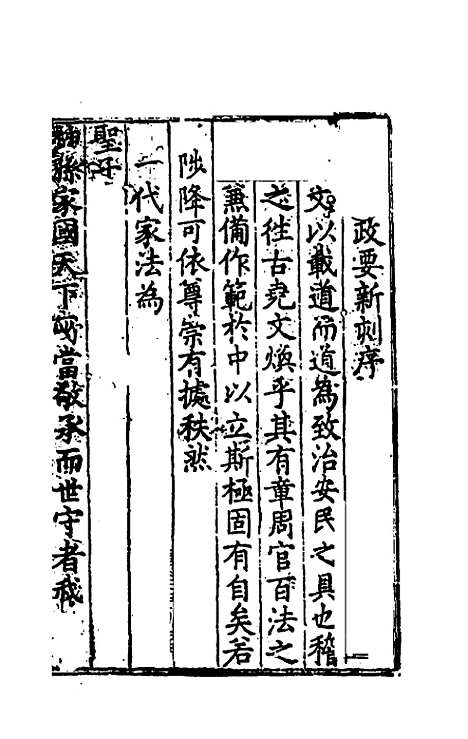 政要新刻序
文以載道而道為致治安民之具也稽
之往古堯文煥乎其有章周官百法之
兼備作範於中以立斯極固有自矣若
陟降可依尊崇有據秩然
一代家法為
聖子
神孫家國天下所當敬承而世守者哉